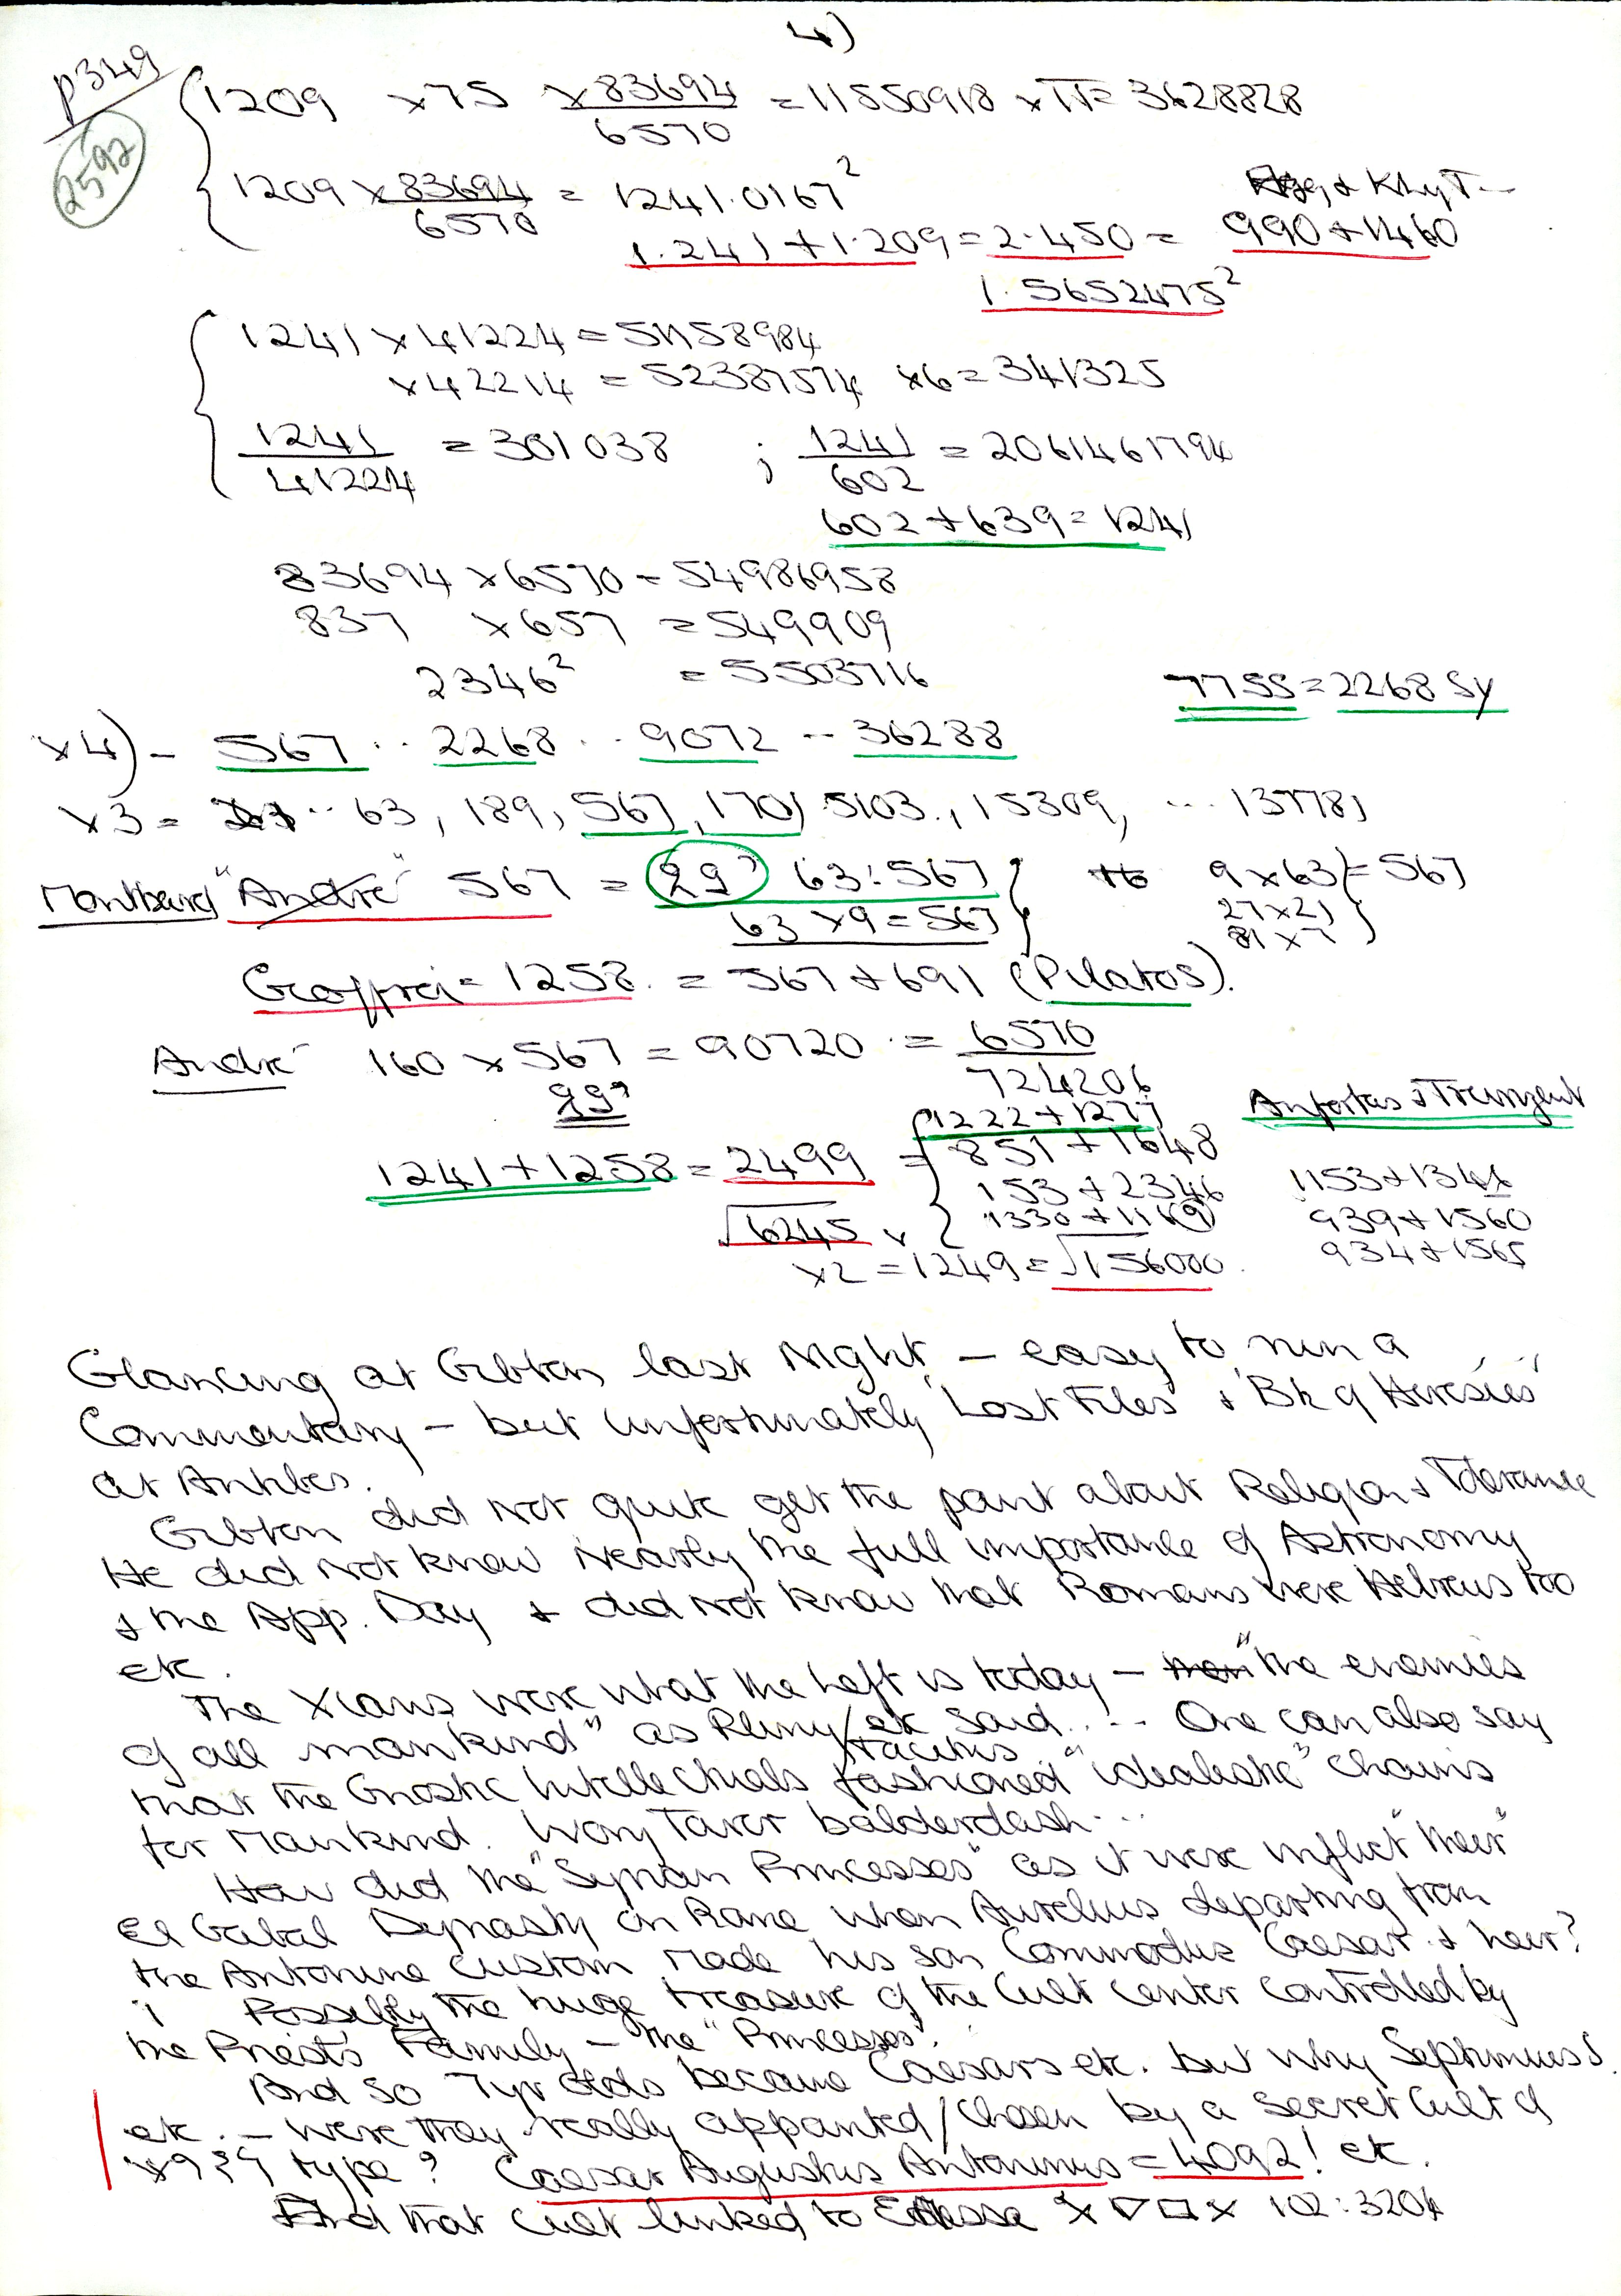 4)
p349
2592
1209 x75 x 83694/6570 = 11550918 x π = 3628828
1209 x 83694/6570 = 1241.0167²
& KhyT--
1.241 + 1.209 = 2.450 = 990 + 1460
1.5652475²
1241 x 41224 = 51158984
x 42214 = 52387574 x6 = 341325
1241/41224 = 301038 ; 1241/602 = 2061461794
602 + 639 = 1241
83694 x 6570 = 54986958
837 x 657 = 549909
2346² = 5503716
7755 = 2268 Sy
x4) - 567 .. 2268 .. 9072 -- 36288
x3 = .. 63, 189, 567, 1701 5103., 15309, ... 137781
Montbard "André" 567 = 99' 63:567 9 x 63 = 567
63 x 9 = 567 27 x 21
81 x 7
Geoffroi = 1258. = 567 + 691 (Pilatos).
André 160 x 567 = 90720 = 6570/724206
99'
1222 + 1277 Anfortas & Trevrizent
1241 + 1258 = 2499 = 851 + 1648
153 + 2346 1153 + 1346
√6245 v 1330 + 1169 939 + 1560
x2 = 1249 = √156000 934 + 1565
Glancing at Gibbon last Night - easy to run a
Commentary - but unfortunately "Lost Files" & "Bk of Heresies"
at Antibes.
Gibbon did Not quite get the point about Religion & Tolerance
He did Not know Nearly the full importance of Astronomy
& the App. Day & did Not know that Romans were Hebrews too
etc.
The Xians were what the Left is today - "the enemies
of all mankind" as Pliny/Tacitus etc said.... One can also say
that the Gnostic Intellectuals fashioned "idealistic" Chains
for Mankind. Ivory Tower balderdash...
How did the "Syrian Princesses" as it were inflict "their"
El Gabal Dynasty on Rome when Aurelius departing from
the Antonine custom made his son Commodus Caesar & heir?
Possibly the huge treasure of the Cult Center controlled by
the Priests' Family - the "Princesses".
And so 7yr olds became Caesars etc. but why Septimius S.
etc. - were they really appointed/chosen by a secret Cult of
type? Caesar Augustus Antoninus = 4092! etc.
And that Cult linked to Edessa x ▽ □ x 102:3204